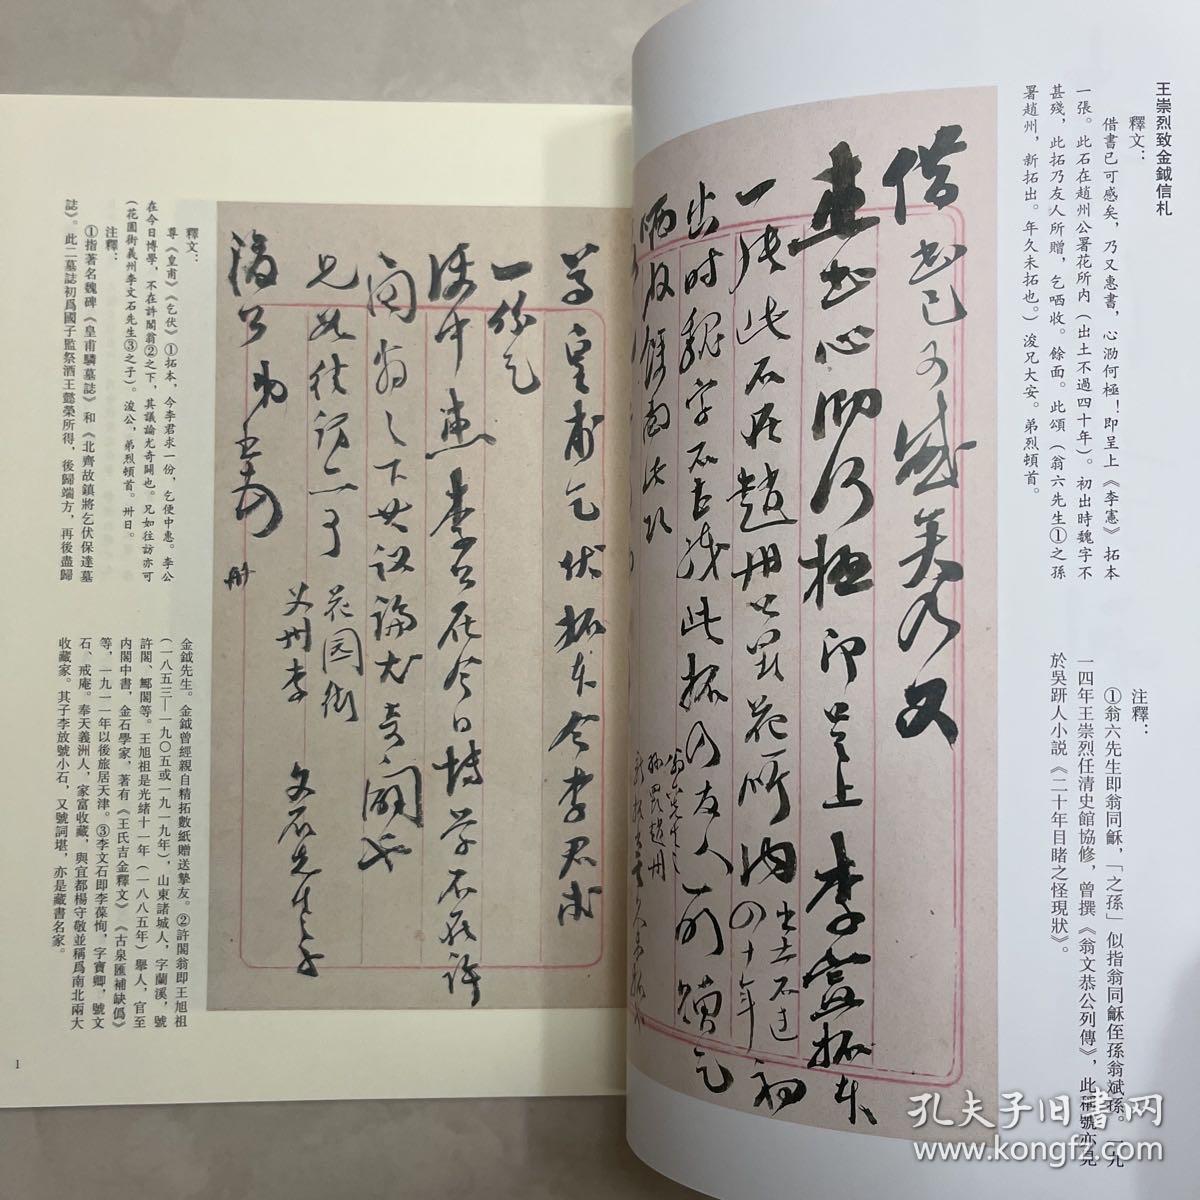 王崇烈致金鉞信札
釋文：
借書已可感矣，乃又惠書，心泐何極！即呈上《李憲》拓本
一張。此石在趙州公署花所內（出土不過四十年）。初出時魏字不
甚殘，此拓乃友人所贈，乞哂收。餘面。此頌（翁六先生①之孫
署趙州，新拓出。年久未拓也。）浚兄大安。弟烈頓首。
注釋：
①翁六先生即翁同龢，「之孫」似指翁同龢侄孫翁斌孫。一九
一四年王崇烈任清史館協修，曾撰《翁文恭公列傳》，此稱號亦見
於吳趼人小説《二十年目睹之怪現狀》。
借書已可感矣乃又
惠書心泐何極即呈上李憲拓本
一張此石在趙州公署花所內出土不過四十年初
出時魏字不甚殘此拓乃友人所贈乞
哂收餘面此頌
翁六先生之
孫署趙州
新拓出年久未拓也
尊皇甫乞伏拓本今李君求
一份乞
便中惠李公在今日博學不在許
閣翁之下其議論尤奇闢也
兄如往訪亦可
花園街
義州李
文石先生之子
浚公弟烈頓首
卅
釋文：
尊《皇甫》《乞伏》①拓本，今李君求一份，乞便中惠。李公
在今日博學，不在許閣翁②之下，其議論尤奇闢也。兄如往訪亦可
（花園街義州李文石先生③之子）。浚公，弟烈頓首。卅日。
注釋：
①指著名魏碑《皇甫驎墓誌》和《北齊故鎮將乞伏保達墓
誌》。此二墓誌初爲國子監祭酒王懿榮所得，後歸端方，再後盡歸
金鉞先生。金鉞曾經親自精拓數紙贈送摯友。②許閣翁即王旭祖
（一八五三—一九〇五或一九一九年），山東諸城人，字蘭溪，號
許閣、鄦閣等。王旭祖是光緒十一年（一八八五年）舉人，官至
內閣中書，金石學家，著有《王氏吉金釋文》《古泉匯補缺僞》
等，一九一一年以後旅居天津。③李文石即李葆恂，字寶卿，號文
石、戒庵。奉天義洲人，家富收藏，與宜都楊守敬並稱爲南北兩大
收藏家。其子李放號小石，又號詞堪，亦是藏書名家。
1
孔夫子旧書网
www.kongfz.com